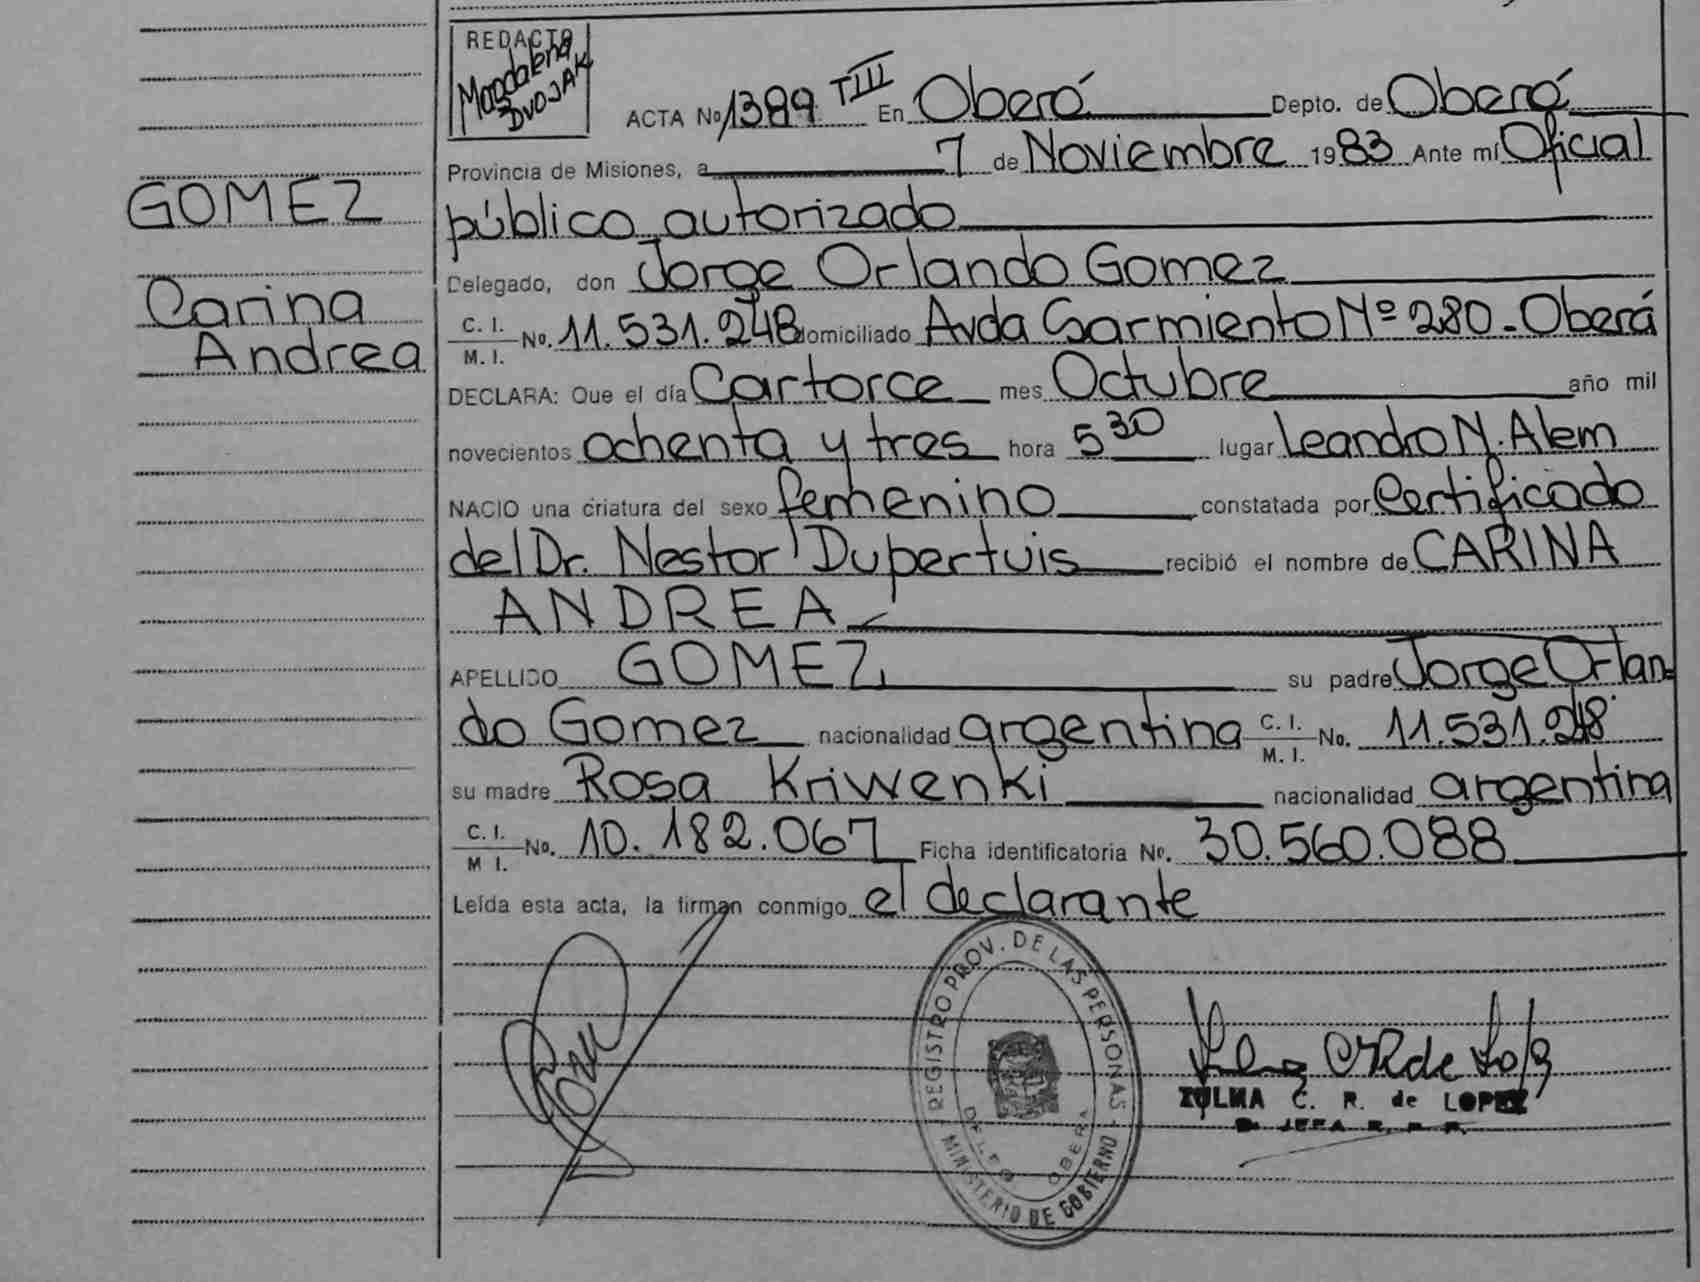 REDACTO
Magdalena
DVOJAK
ACTA No 1389 TIII En Oberá Depto. de Oberá
Provincia de Misiones, a 7 de Noviembre 1983 Ante mí Oficial
GOMEZ
público autorizado
Delegado, don Jorge Orlando Gomez
Carina
Andrea
C. I.
M. I. No. 11.531.248 domiciliado Avda Sarmiento Nº 280 - Oberá
DECLARA: Que el día Cartorce mes Octubre año mil
novecientos ochenta y tres hora 5 30 lugar Leandro N. Alem
NACIO una criatura del sexo femenino constatada por Certificado
del Dr. Nestor Dupertuis recibió el nombre de CARINA
ANDREA
APELLIDO GOMEZ su padre Jorge Orlan-
do Gomez nacionalidad argentina C. I. M. I. No. 11.531.248
su madre Rosa Kriwenki nacionalidad argentina
C. I. M I. No. 10.182.067 Ficha identificatoria No. 30.560.088
Leída esta acta, la firman conmigo el declarante
REGISTRO PROV. DE LAS PERSONAS
MINISTERIO DE GOBIERNO
OBERA
ZULMA C. R. de LOPEZ
JEFA R. P. P.